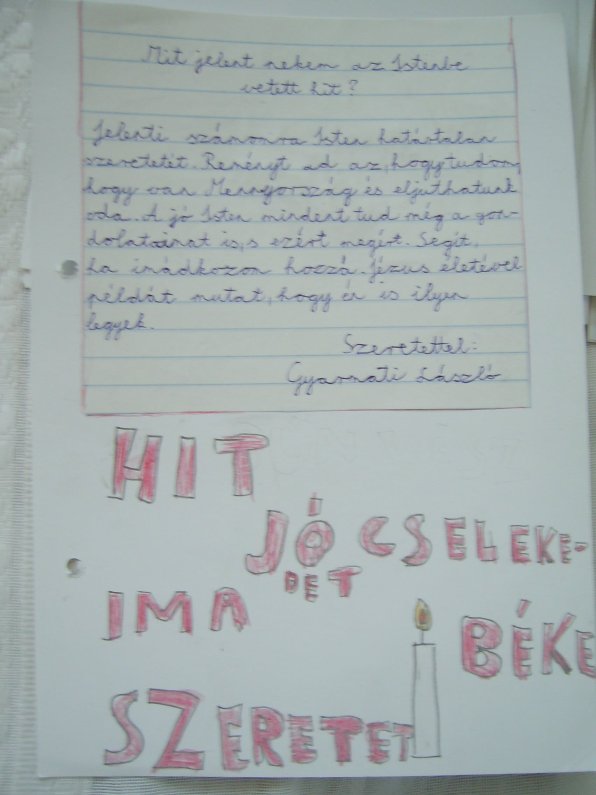 Mit jelent nekem az Istenbe
vetett hit?
Jelenti számomra Isten határtalan
szeretetét. Reményt ad az, hogy tudom,
hogy van Mennyország és eljuthatunk
oda. A jó Isten mindent tud még a gon-
dolataimat is, s ezért megért. Segít,
ha imádkozom hozzá. Jézus életével
példát mutat, hogy én is ilyen
legyek.
Szeretettel:
Gyarmati László
HIT
JÓ CSELEKE-
DET
IMA
BÉKE
SZERETET